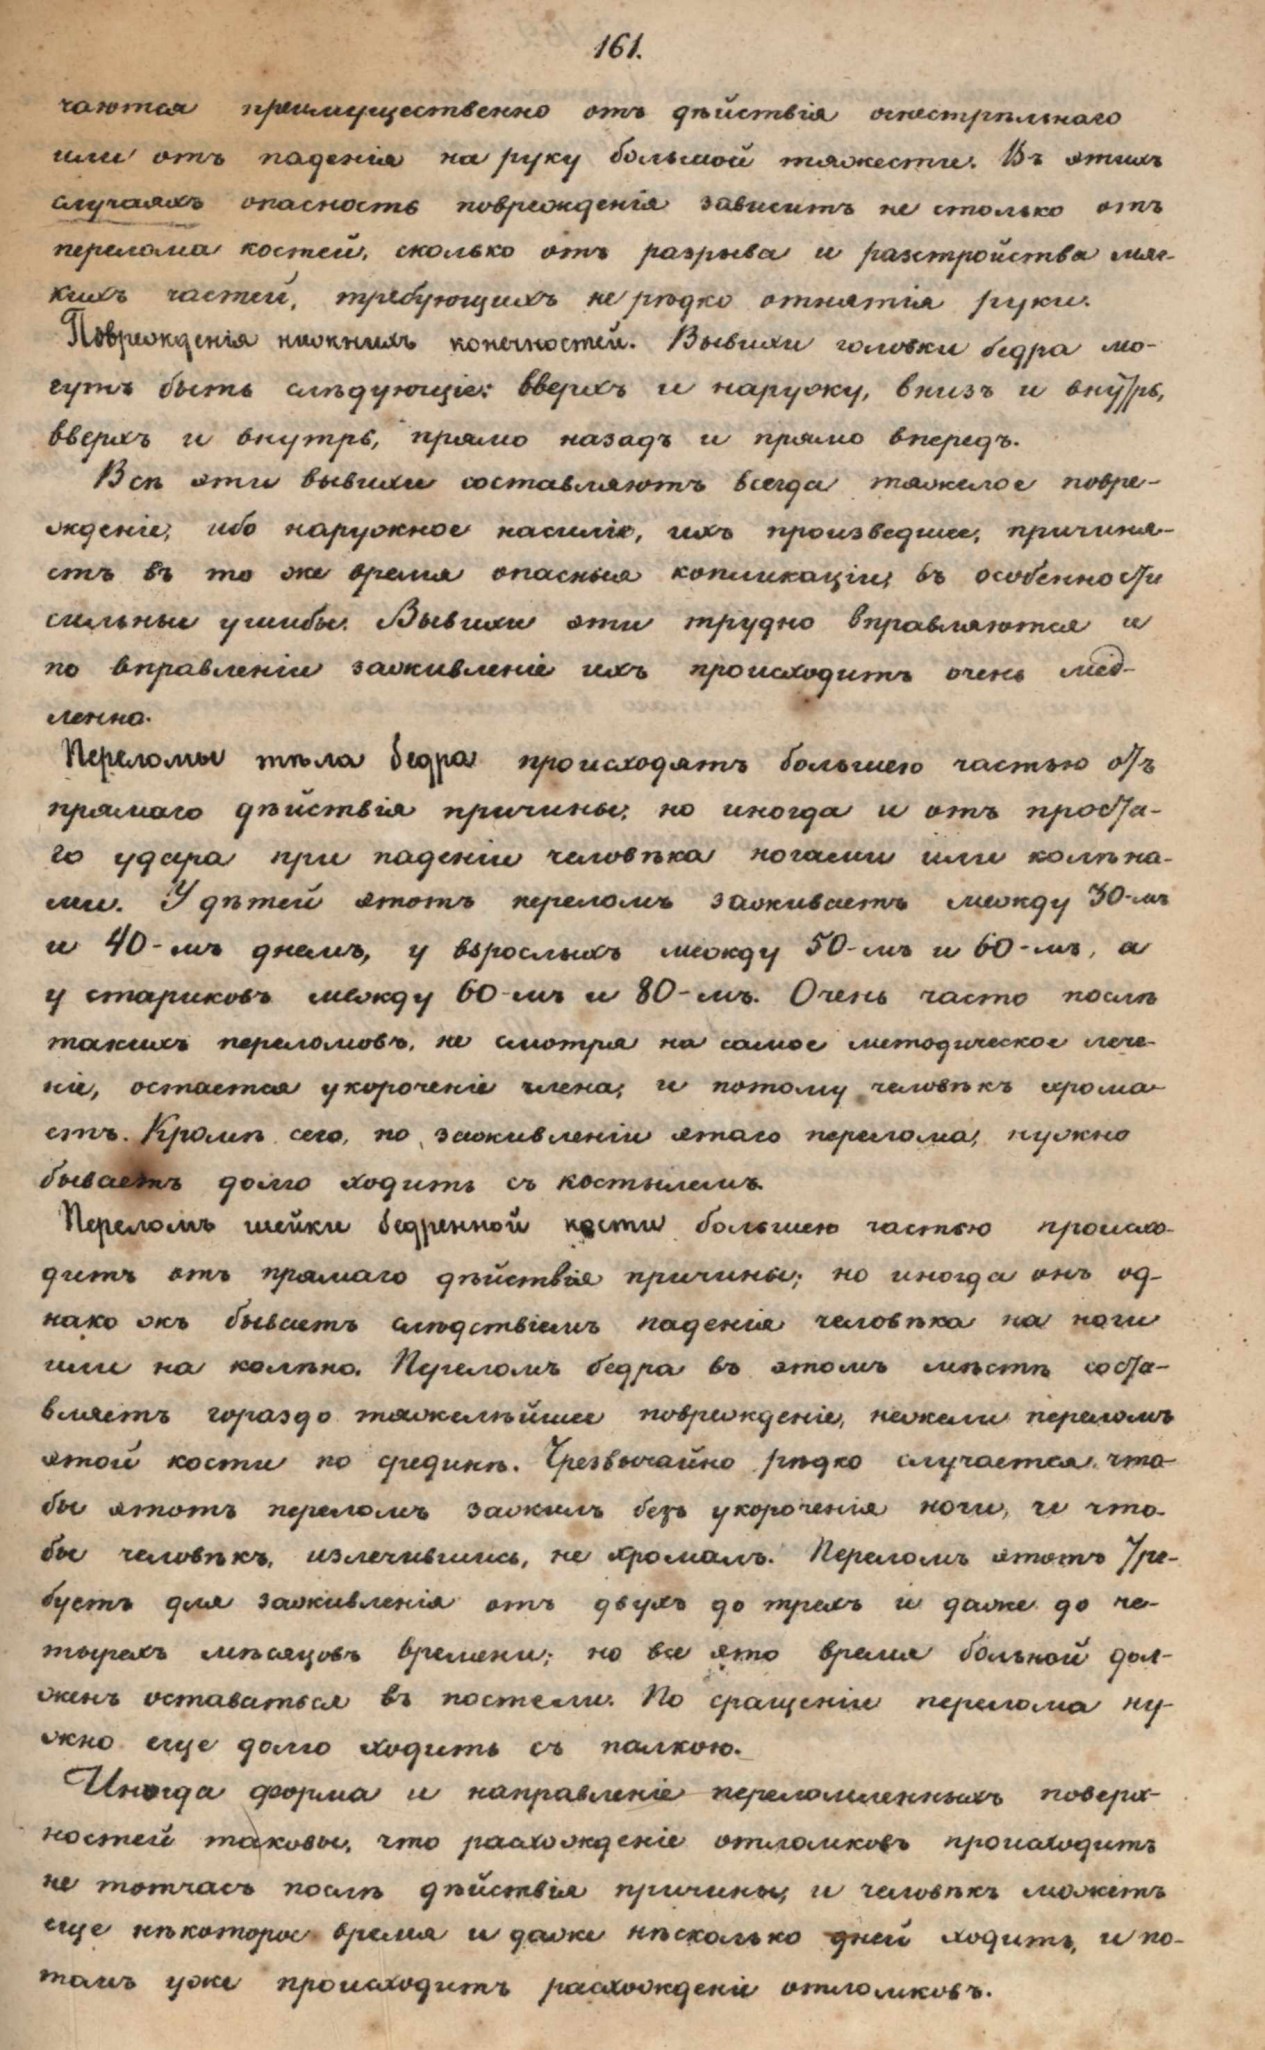 161.
чаются преимущественно отъ дѣйствія огнестрѣльнаго
или отъ паденія на руку большой тяжести. Въ этихъ
случаяхъ опасность поврежденія зависитъ не столько отъ
перелома костей, сколько отъ разрыва и разстройства мяг-
кихъ частей, требующихъ не рѣдко отнятія руки.
Поврежденія нижнихъ конечностей. Вывихи головки бедра мо-
гутъ быть слѣдующіе: вверхъ и наружу, внизъ и внутрь,
вверхъ и внутрь, прямо назадъ и прямо впередъ.
Всѣ эти вывихи составляютъ всегда тяжелое повре-
жденіе, ибо наружное насиліе, ихъ произведшее, причиня-
етъ въ то же время опасныя копликаціи, въ особенности
сильные ушибы. Вывихи эти трудно вправляются и
по вправленіи заживленіе ихъ происходитъ очень мед-
ленно.
Переломы тѣла бедра происходятъ большею частью отъ
прямаго дѣйствія причины; но иногда и отъ проста-
го удара при паденіи человѣка ногами или колѣна-
ми. У дѣтей этотъ переломъ заживаетъ между 30-мъ
и 40-мъ днемъ, у взрослыхъ между 50-мъ и 60-мъ, а
у стариковъ между 60-мъ и 80-мъ. Очень часто послѣ
такихъ переломовъ, не смотря на самое методическое лече-
ніе, остается укороченіе члена, и потому человѣкъ хрома-
етъ. Кромѣ сего, по заживленіи этаго перелома, нужно
бываетъ долго ходить съ костылемъ.
Переломъ шейки бедренной кости большею частью происхо-
дитъ отъ прямаго дѣйствія причины; но иногда онъ од-
нако жъ бываетъ слѣдствіемъ паденія человѣка на ноги
или на колѣно. Переломъ бедра въ этомъ мѣстѣ соста-
вляетъ гораздо тяжелѣйшее поврежденіе, нежели переломъ
этой кости по срединѣ. Чрезвычайно рѣдко случается, что-
бы этотъ переломъ зажилъ безъ укороченія ноги, и что-
бы человѣкъ, излечившись, не хромалъ. Переломъ этотъ тре-
буетъ для заживленія отъ двухъ до трехъ и даже до че-
тырехъ мѣсяцовъ времени; но все это время больной дол-
женъ оставаться въ постели. По сращеніи перелома ну-
жно еще долго ходить съ палкою.
Иногда форма и направленіе переломленныхъ поверх-
ностей таковы, что расхожденіе отломковъ происходитъ
не тотчасъ послѣ дѣйствія причины, и человѣкъ можетъ
еще нѣкоторое время и даже нѣсколько дней ходить, и по-
томъ уже происходитъ расхожденіе отломковъ.